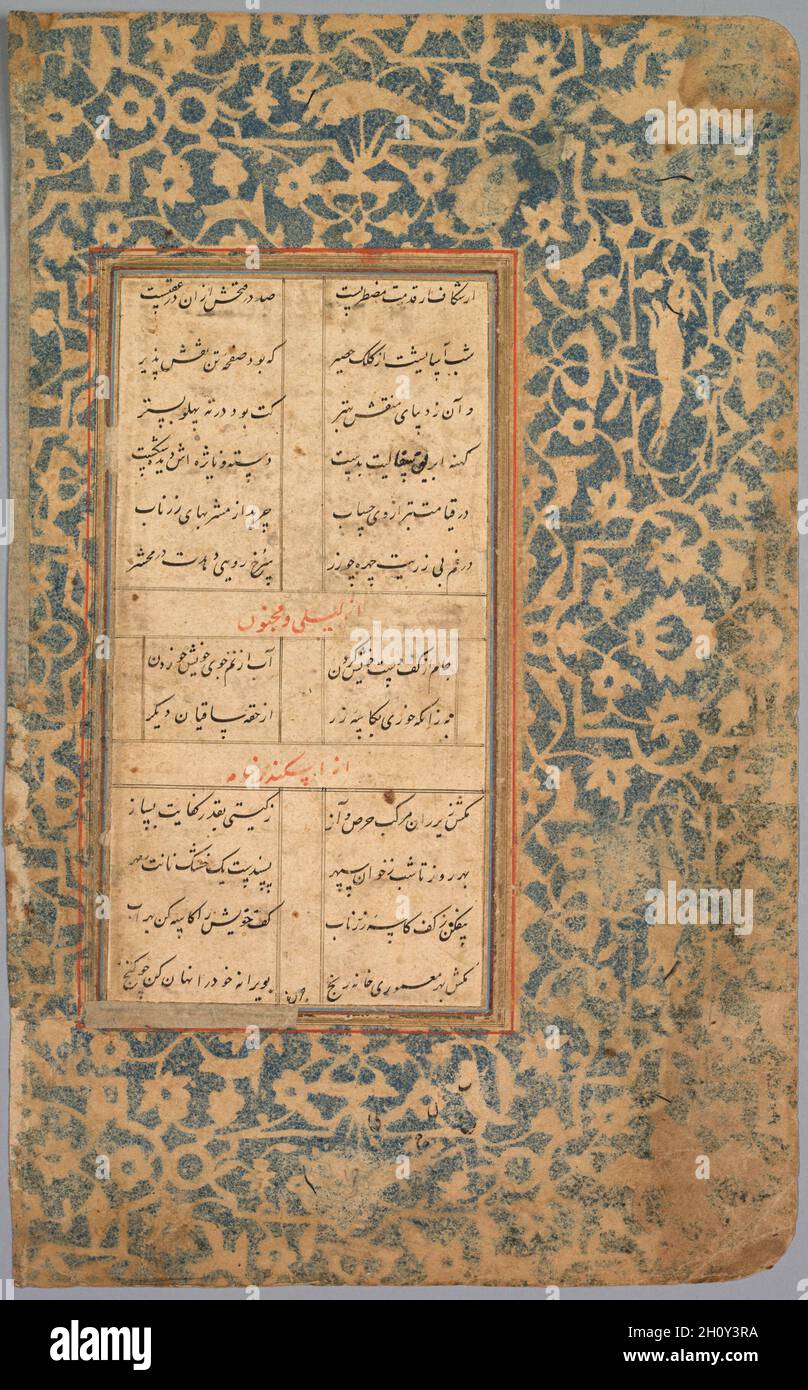 ار شکاف ار قدمت مضطربست صد در فتحش از ان در عقبست
شب آسایشت از کلک حصیر که بود صفحه تن نقش پذیر
و آن ز دیبای منقش بهتر کت بود در ته پهلو بستر
کهنه ابریق سفالیت بدست دسته و نایژه اش دیده شکست
در قیامت بترازوی حساب چربد از مشربهای زر ناب
در غم بی زریت چهره چو زر سرخ رویی دهدت در محشر
از لیلی و مجنون
جام از کف دست خویش کردن آب از نم جوی خویش خوردن
به زانکه خوری بکاسه زر از حقه ساقیان دیگر
از اسکندرنامه
مکش زیر ران مرکب حرص و آز ز گیتی بقدر کفایت بساز
بهر روز تا شب ز خوان سپهر بسندست یک خشک نانت
بیفکن ز کف کاسه زر ناب کف خویش را کاسه کن بهر آب
مکش بهر معموری خانه رنج بویرانه خود را نهان کن چو گنج
alamy
alamy
Image ID: 2H0Y3RA
www.alamy.com